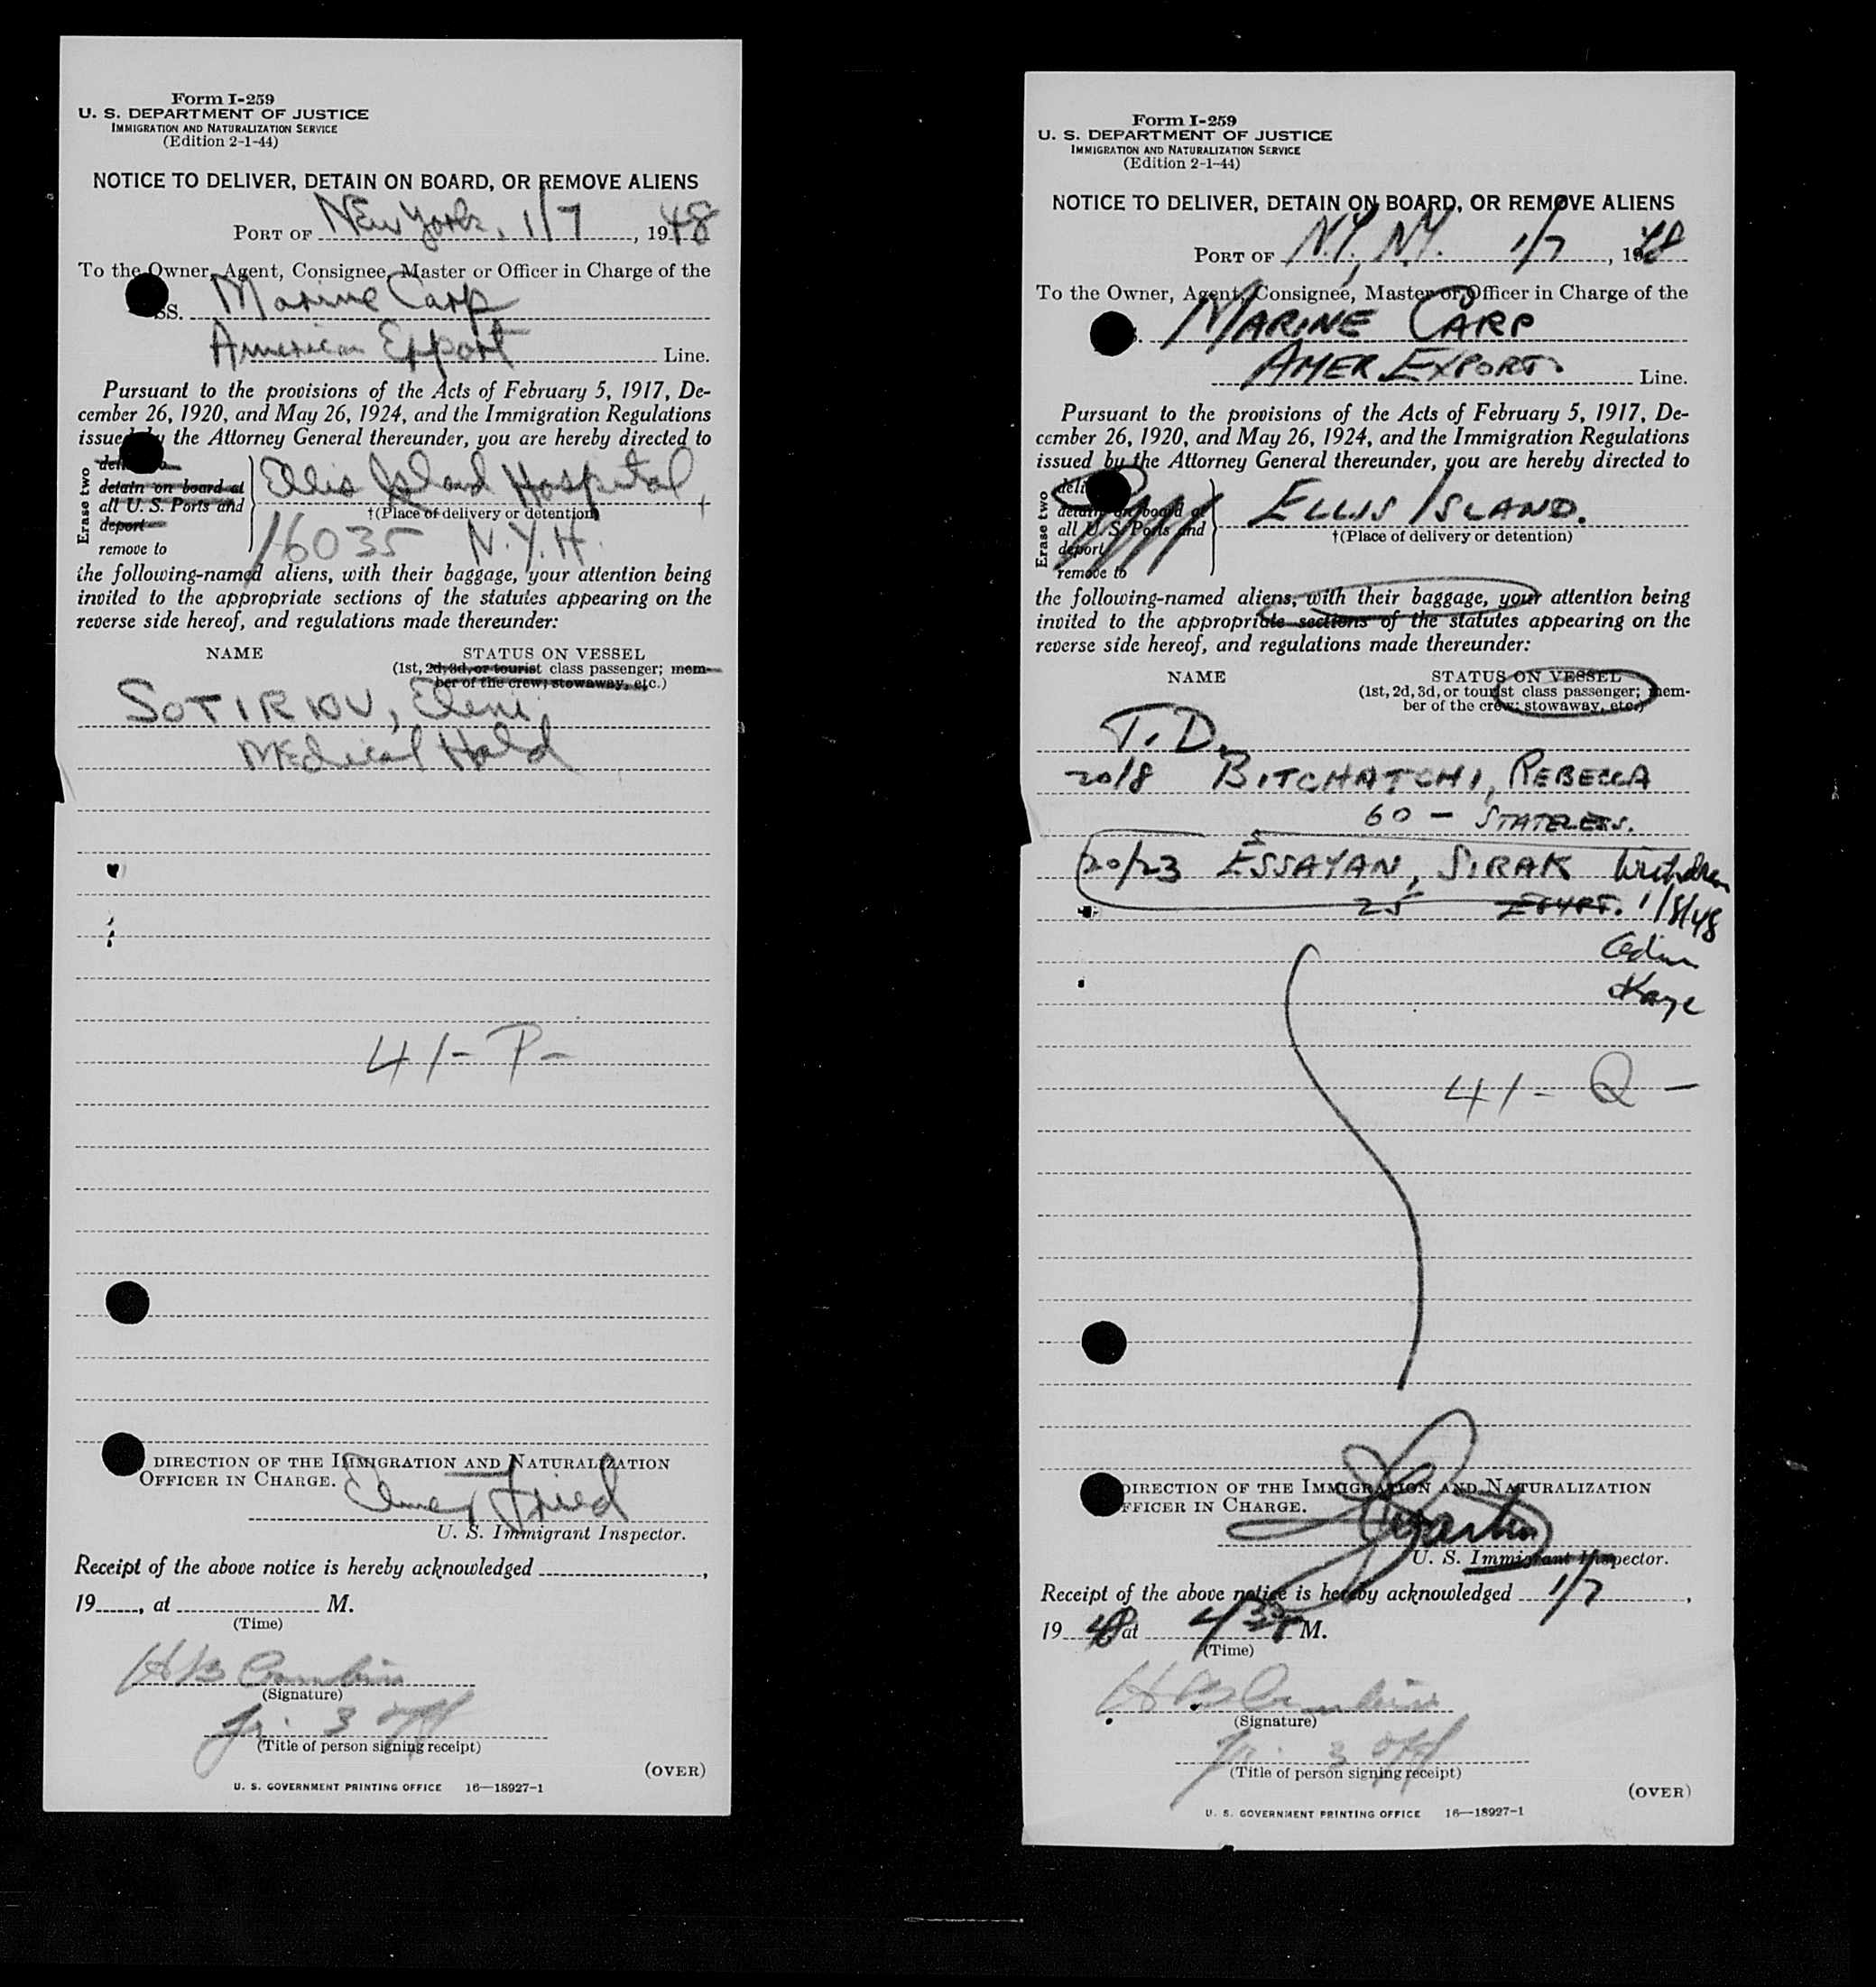 Form I-259
U. S. DEPARTMENT OF JUSTICE
IMMIGRATION AND NATURALIZATION SERVICE
(Edition 2-1-44)
NOTICE TO DELIVER, DETAIN ON BOARD, OR REMOVE ALIENS
PORT OF New York, 1/7, 1948
To the Owner, Agent, Consignee, Master or Officer in Charge of the
SS. Marine Carp
American Export Line.
Pursuant to the provisions of the Acts of February 5, 1917, De-
cember 26, 1920, and May 26, 1924, and the Immigration Regulations
issued by the Attorney General thereunder, you are hereby directed to
Erase two
detain on board at
all U. S. Ports and
deport
remove to
Ellis Island Hospital,
†(Place of delivery or detention)
16035 N.Y.H.
the following-named aliens, with their baggage, your attention being
invited to the appropriate sections of the statutes appearing on the
reverse side hereof, and regulations made thereunder:
NAME STATUS ON VESSEL
(1st, 2d, 3d, or tourist class passenger; mem-
ber of the crew; stowaway, etc.)
SOTIRIOU, Eleni
Medical Hold
41-P-
DIRECTION OF THE IMMIGRATION AND NATURALIZATION
OFFICER IN CHARGE.
Fried
U. S. Immigrant Inspector.
Receipt of the above notice is hereby acknowledged ,
19 , at M.
(Time)
(Signature)
Jr. 3 Off
(Title of person signing receipt)
(OVER)
U. S. GOVERNMENT PRINTING OFFICE 16—18927-1
Form I-259
U. S. DEPARTMENT OF JUSTICE
IMMIGRATION AND NATURALIZATION SERVICE
(Edition 2-1-44)
NOTICE TO DELIVER, DETAIN ON BOARD, OR REMOVE ALIENS
PORT OF N.Y., N.Y. 1/7, 1948
To the Owner, Agent, Consignee, Master or Officer in Charge of the
MARINE CARP
AMER EXPORT. Line.
Pursuant to the provisions of the Acts of February 5, 1917, De-
cember 26, 1920, and May 26, 1924, and the Immigration Regulations
issued by the Attorney General thereunder, you are hereby directed to
Erase two
detain on board at
all U. S. Ports and
deport
remove to
ELLIS ISLAND.
†(Place of delivery or detention)
the following-named aliens, with their baggage, your attention being
invited to the appropriate sections of the statutes appearing on the
reverse side hereof, and regulations made thereunder:
NAME STATUS ON VESSEL
(1st, 2d, 3d, or tourist class passenger; mem-
ber of the crew; stowaway, etc.)
T.D.
20/8 BITCHATCHI, REBECCA
60 - STATELESS.
20/23 ESSAYAN, SIRAK Withdrawn
25 EGYPT. 1/8/48
Kaye
41- Q -
DIRECTION OF THE IMMIGRATION AND NATURALIZATION
OFFICER IN CHARGE.
U. S. Immigrant Inspector.
Receipt of the above notice is hereby acknowledged 1/7,
1948 at M.
(Time)
(Signature)
Jr. 3 Off
(Title of person signing receipt)
(OVER)
U. S. GOVERNMENT PRINTING OFFICE 16—18927-1